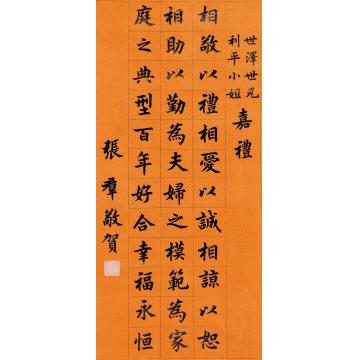 世澤世兄
利平小姐
嘉禮
相敬以禮相愛以誠相諒以恕
相助以勤為夫婦之模範為家
庭之典型百年好合幸福永恒
張羣敬賀